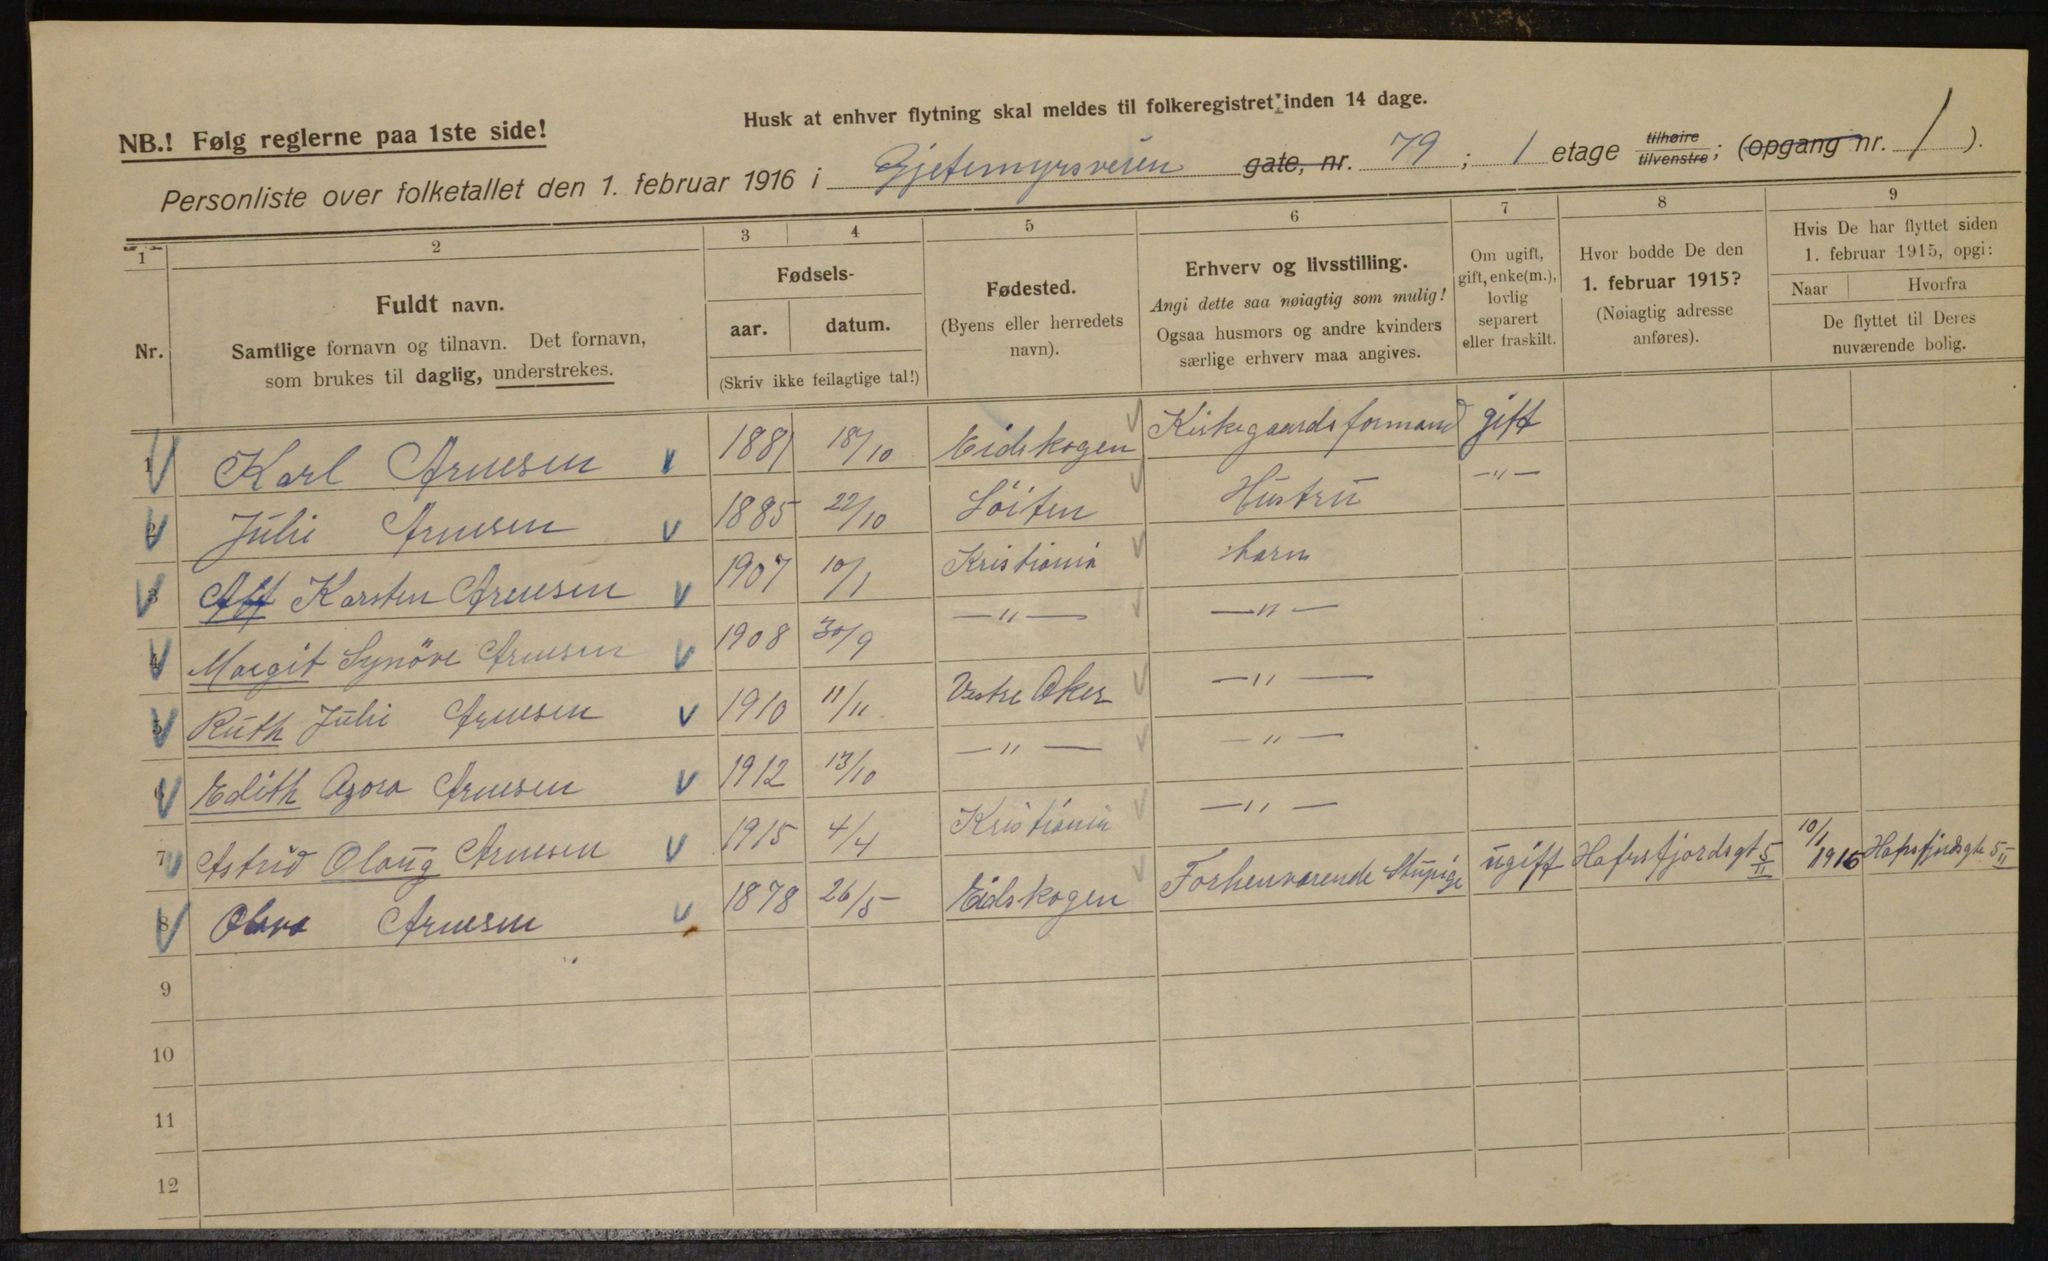 Husk at enhver flytning skal meldes til folkeregistret inden 14 dage.
NB.! Følg reglerne paa 1ste side!
Personliste over folketallet den 1. februar 1916 i Gjetemyrsveien gate, nr. 79; 1 etage tilhøire tilvenstre; (opgang nr. 1).
1 2 3 4 5 6 7 8 9
Nr. Fuldt navn. Samtlige fornavn og tilnavn. Det fornavn, som brukes til daglig, understrekes.
Fødsels- aar. datum. (Skriv ikke feilagtige tal!)
Fødested. (Byens eller herredets navn).
Erhverv og livsstilling. Angi dette saa nøiagtig som mulig! Ogsaa husmors og andre kvinders særlige erhverv maa angives.
Om ugift, gift, enke(m.), lovlig separert eller fraskilt.
Hvor bodde De den 1. februar 1915? (Nøiagtig adresse anføres).
Hvis De har flyttet siden 1. februar 1915, opgi: Naar Hvorfra De flyttet til Deres nuværende bolig.
1 Karl Arnesen 1881 18/10 Eidskogen Kirkegaardsformand gift
2 Juli Arnesen 1885 22/10 Löiten Hustru —"—
3 Alf Karsten Arnesen 1907 10/1 Kristiania barn
4 Margit Synöve Arnesen 1908 30/9 —"— —"—
5 Ruth Juli Arnesen 1910 11/11 Vestre Aker —"—
6 Edith Agora Arnesen 1912 13/10 —"— —"—
7 Astrid Olaug Arnesen 1915 4/4 Kristiania —"—
8 Arnesen 1878 26/5 Eidskogen Forhenværende ugift Hafrsfjordsgt 5/II 10/1 1916 Hafrsfjordsgt 5/II
9
10
11
12